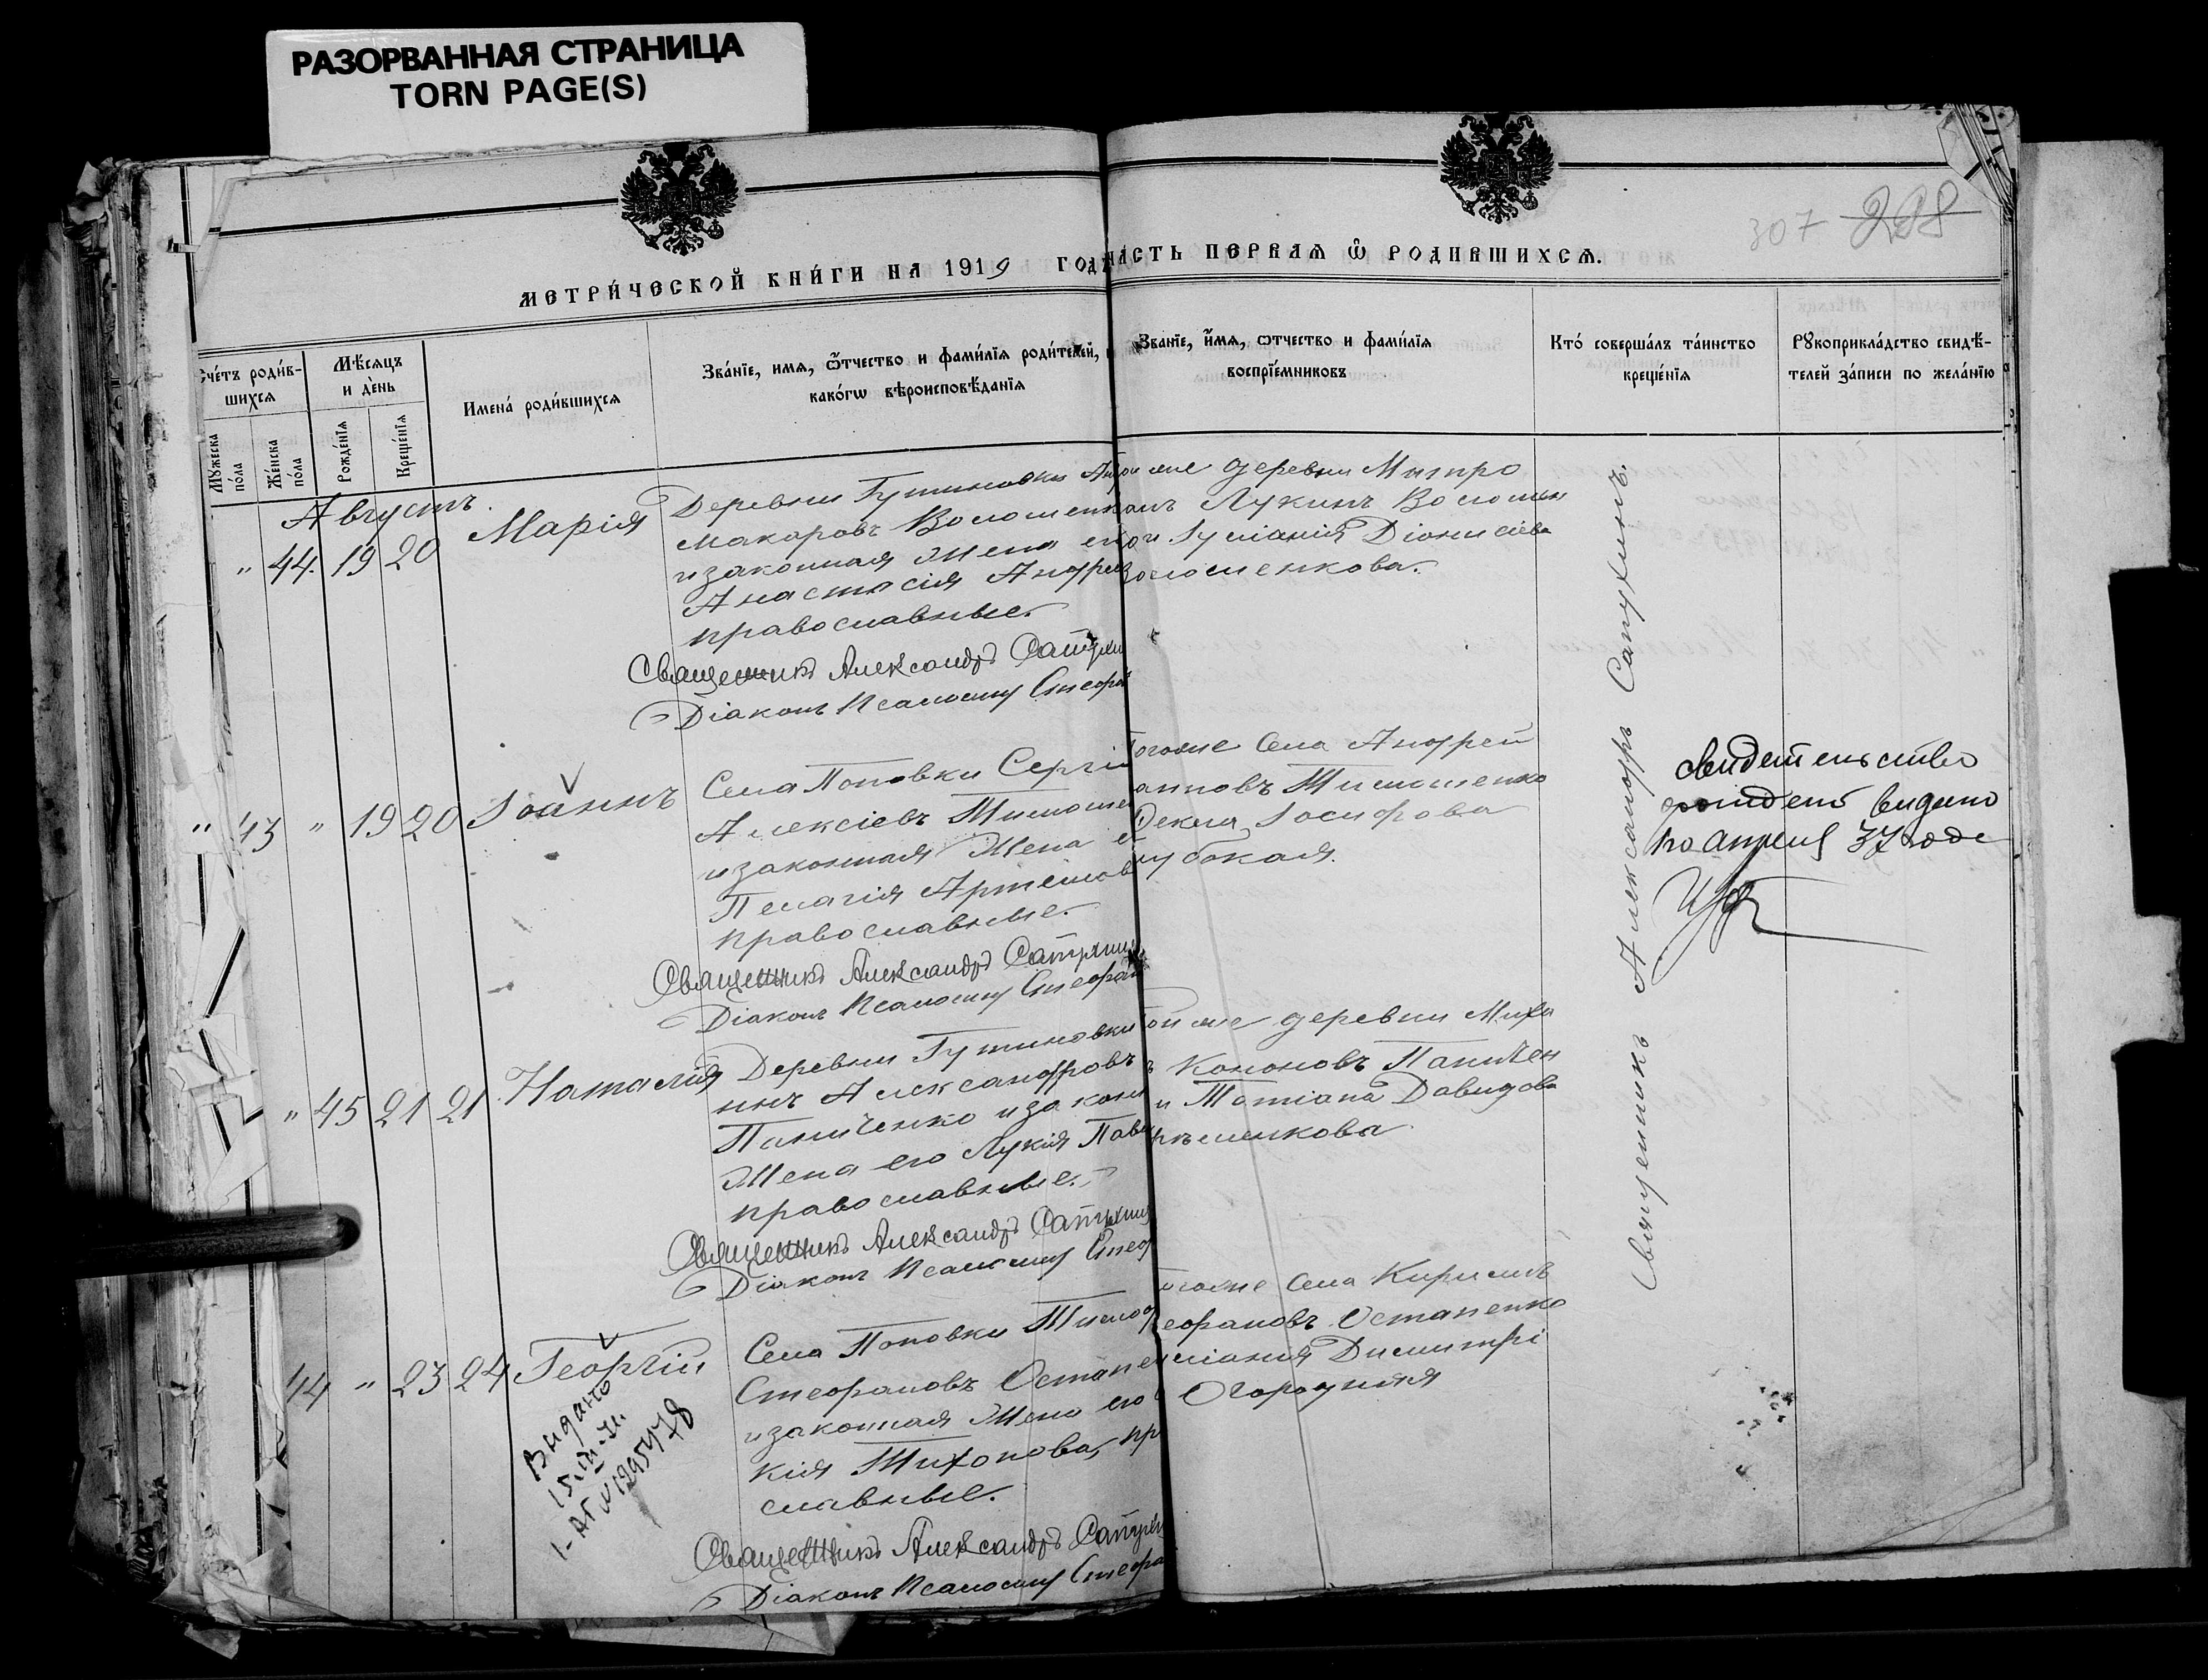 РАЗОРВАННАЯ СТРАНИЦА
TORN PAGE(S)
307 228
МЕТРИ́ЧЕСКОЙ КНИ́ГИ НА 1919 ГОДЪ
ЧАСТЬ ПЕРВАЯ Ѿ РОДИВШИХСЯ.
Счéтъ роди́в-
шихся
Мꙋжеска
по́ла
Же́нска
по́ла
Мѣ́сяцъ
и де́нь
Рожде́нїя
Креще́нїя
Имена́ роди́вшихся
Зва́нїе, имя, ѻ́тчество и фами́лїя роди́телей, и
како́гѡ вѣроисповѣ́данїя
Зва́нїе, и́мя, ѻтчество и фами́лїя
воспрїе́мниковъ
Кто́ соверша́лъ та́инство
креще́нїя
Рꙋкоприкла́дство свидѣ́-
телей за́писи по жела́нїю
Августъ
" 44. 19 20 Марія
Деревни Гутиновки
Макаровъ Волошенко
и законная жена его
Анастасія Андрее
православные.
Священникъ Александръ Сапухин
Діаконъ Псаломщ Стефан
же деревни Митро
Лукинъ Волошен
Іуліанія Діонисіева
Волошенкова.
43 " 19 20 Іоаннъ
Села Поповки Сергій
Алексіевъ Тимоше
и законная жена е
Пелагія Артемов
православные.
Священникъ Александръ Сапухин
Діаконъ Псаломщ Стефан
тогоже села Андрей
анновъ Тимошенко
Фекла Іосифова
убокая.
свидетельство
рожденя видано
по апреля 37 годе
" 45 21 21 Наталія
Деревни Гутиновки
инъ Александровъ
Паниченко и закон
жена его Лукія Пав
православные.
Священникъ Александръ Сапухин
Діаконъ Псаломщ Стеф
той же деревни Миха
Кононовъ Паничен
и Татіана Давидова
44 " 23 24 Георгій
Видано
Села Поповки Тимоф
Стефановъ Остапен
и законная жена его
кія Тихонова, пр
славные.
Священникъ Александръ Сапухи
Діаконъ Псаломщ Стефа
тогоже села Кириллъ
Стефановъ Остапенко
уліанія Димитрі
Огородняя
Священникъ Александръ Сапухинъ.